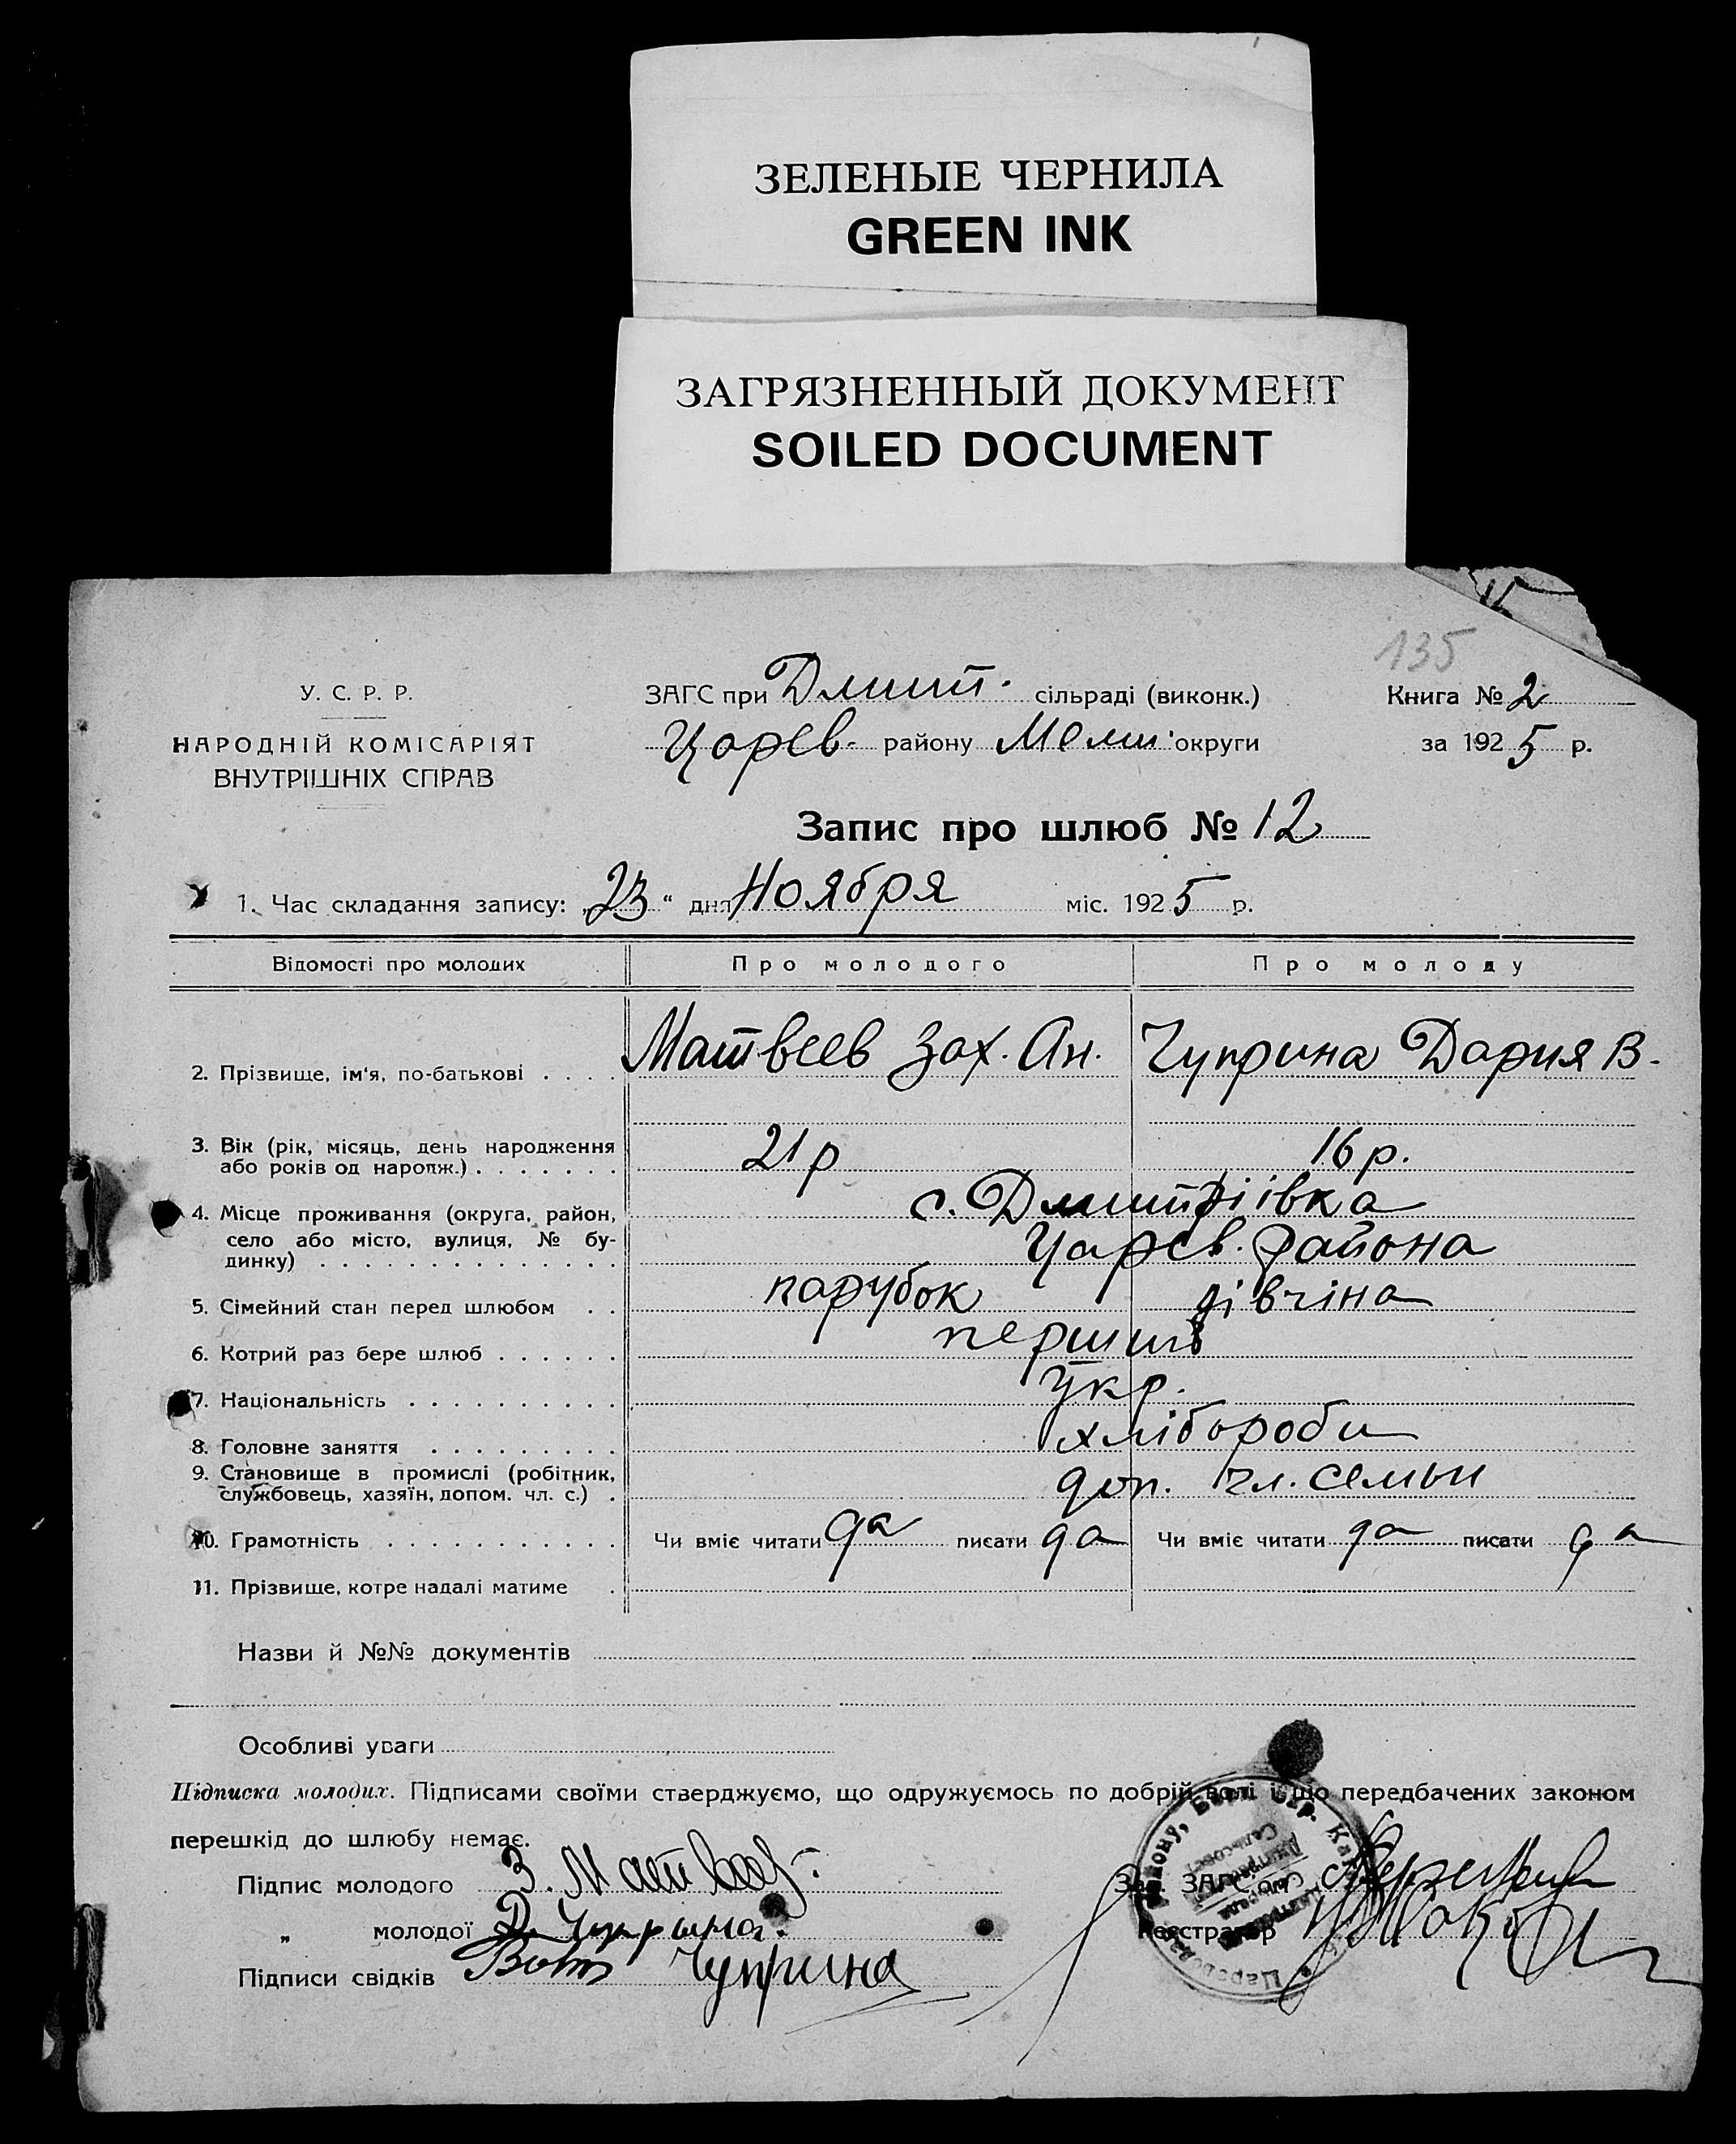 ЗЕЛЕНЫЕ ЧЕРНИЛА
GREEN INK
ЗАГРЯЗНЕННЫЙ ДОКУМЕНТ
SOILED DOCUMENT
135
У. С. Р. Р.
НАРОДНІЙ КОМІСАРІЯТ
ВНУТРІШНІХ СПРАВ
ЗАГС при Дмит. сільраді (виконк.)
Царев. району Мелит. округи
Книга № 2
за 1925 р.
Запис про шлюб № 12
1. Час складання запису: „23“ дня Ноября міс. 1925 р.
Відомості про молодих Про молодого Про молоду
2. Прізвище, ім'я, по-батькові . . . . Матвеев Зах. Ан. Чуприна Дария В.
3. Вік (рік, місяць, день народження
або років од народж.) . . . . . . . 21 р 16 р.
4. Місце проживання (округа, район, с. Дмитріівка
село або місто, вулиця, № бу- Царев. района
динку) . . . . . . . . . . . . . .
5. Сімейний стан перед шлюбом . . парубок дівчіна
6. Котрий раз бере шлюб . . . . . . перший
7. Національність . . . . . . . . . . Укр.
8. Головне заняття . . . . . . . . . хлібороби
9. Становище в промислі (робітник,
службовець, хазяїн, допом. чл. с.) . доп. чл. семьи
10. Грамотність . . . . . . . . . . . Чи вміє читати да писати да Чи вміє читати да писати да
11. Прізвище, котре надалі матиме .
Назви й №№ документів
Особливі уваги
Підписка молодих. Підписами своїми стверджуємо, що одружуємось по добрій волі і що передбачених законом
перешкід до шлюбу немає.
Підпис молодого З. Матвеев.
„ молодої Д. Чупріна.
Підписи свідків Чуприна
Зав. ЗАГС'ом
Реєстратор